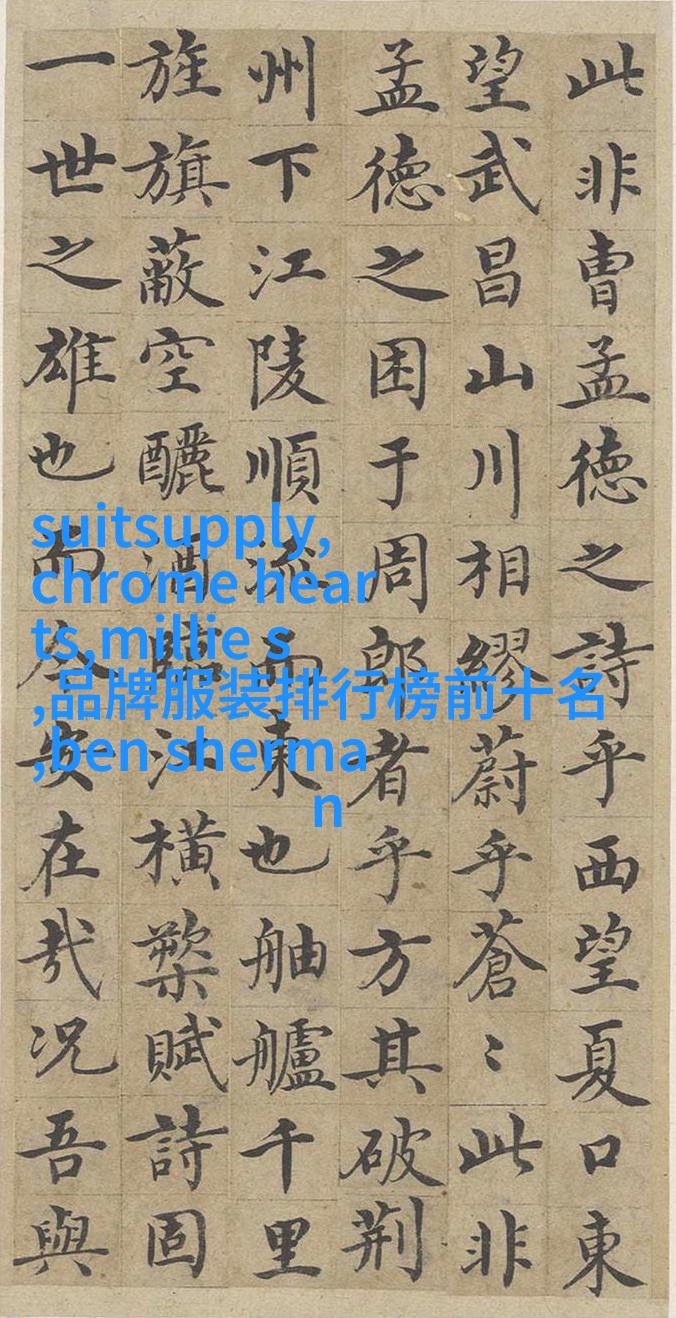 此非曹孟德之詩乎西望夏口東
望武昌山川相繆蔚乎蒼〻此非
孟德之困于周郎者乎方其破荊
州下江陵順流而東也舳艫千里
旌旗蔽空釃酒臨江橫槊賦詩固
一世之雄也而今安在哉况吾與
suitsupply,
chrome hear
ts,millie s
,品牌服装排行榜前十名
,ben sherma
n